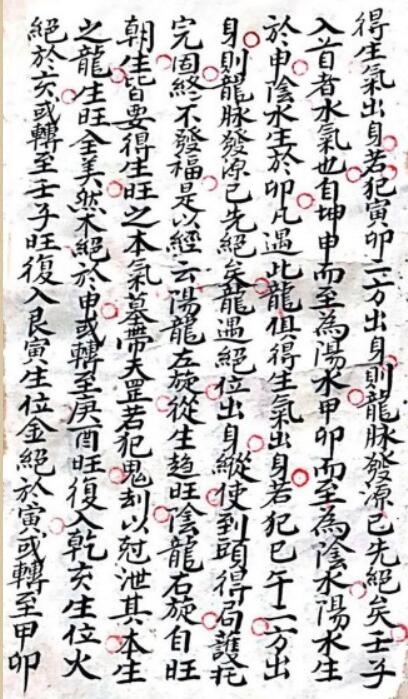 得生氣出身若犯寅卯二方出身則龍脉發源已先絕矣壬子
入首者水氣也自坤申而至為陽水甲卯而至為陰水陽水生
於申陰水生於卯凡遇此龍俱得生氣出身若犯巳午二方出
身則龍脉發源已先絕矣龍遇絕位出身縱使到頭得局護托
完固終不發福是以經云陽龍左旋從生趨旺陰龍右旋自旺
朝生皆要得生旺之本氣墓帶天罡若犯鬼刦以尅泄其本生
之龍生旺全美然木絕於申或轉至庚酉旺復入乾亥生位火
絕於亥或轉至壬子旺復入艮寅生位金絕於寅或轉至甲卯